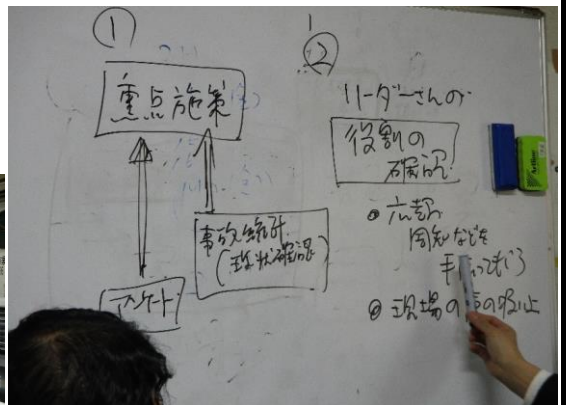 ①
重点施策
事故統計
(現状確認)
アンケート
②
リーダーさんの
役割の
確認
周知などを
現場の声の吸い上